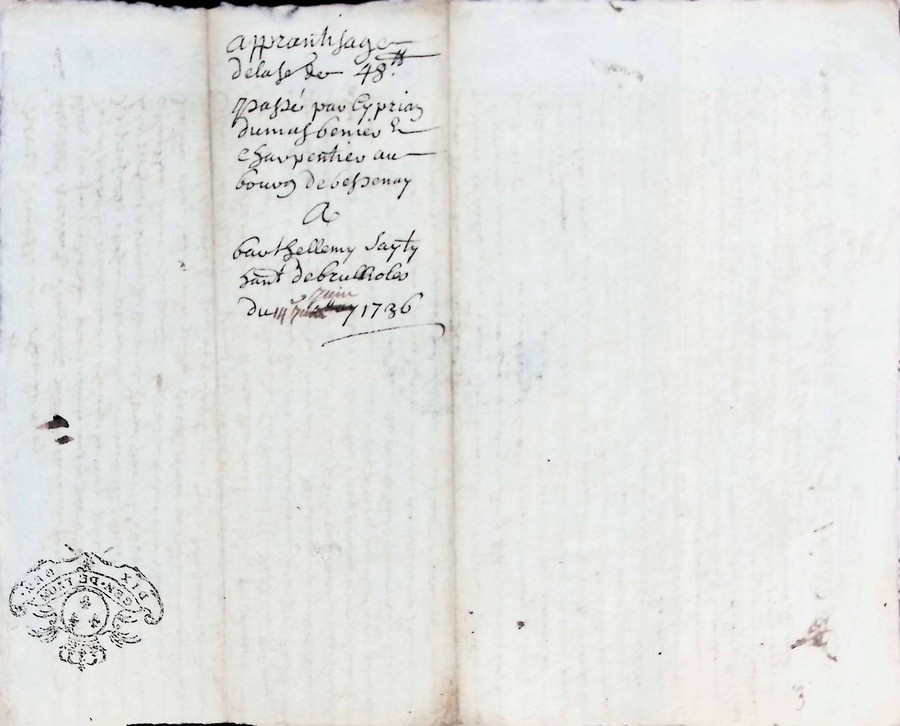 apprentisage
delase de 48tt
passé par Cyprian
dumas benier &
charpentier au
bourg de bessenay
A
barthellemy Sayty
hant de brullioles
du 14 Juin 1736
GEN. DE LYON
DIX DEN.
3